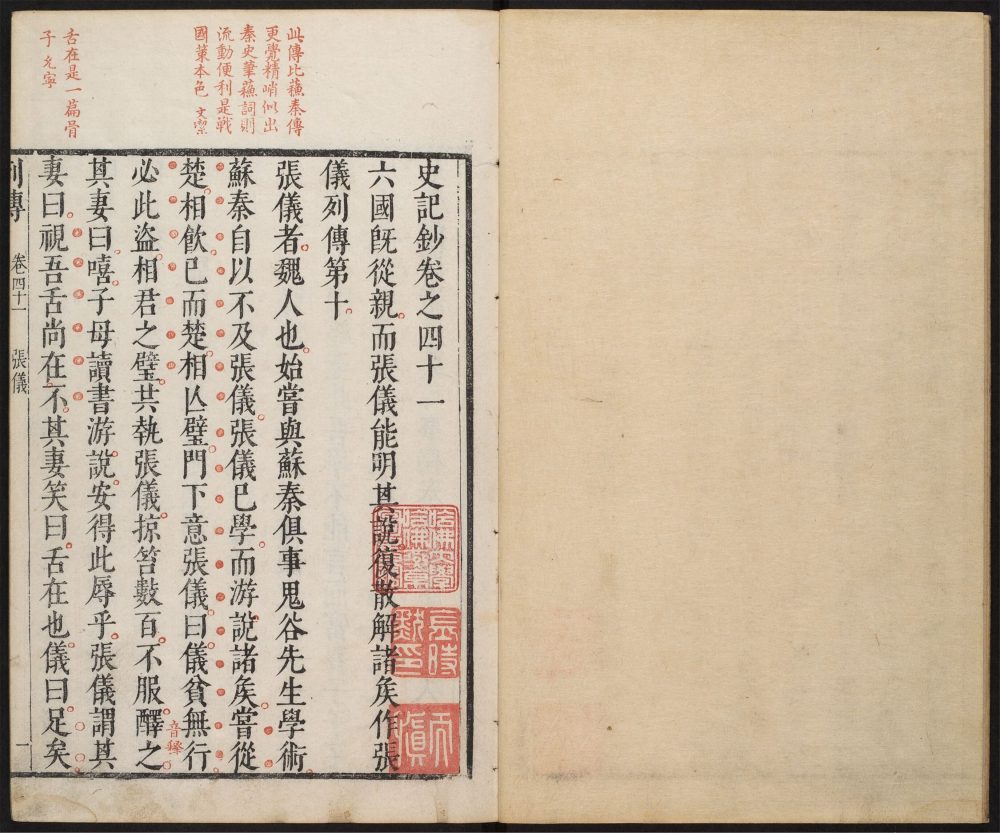 此傳比蘇秦傳
更覺精峭似出
秦史筆蘇詞則
流動便利是戰
國策本色 文潔
舌在是一篇骨
子 允寧
史記鈔卷之四十一
六國旣從親而張儀能明其說復散解諸矦作張
儀列傳第十
張儀者魏人也始嘗與蘇秦俱事鬼谷先生學術
蘇秦自以不及張儀張儀已學而游說諸矦嘗從
楚相飮已而楚相亾璧門下意張儀曰儀貧無行
必此盜相君之璧共執張儀掠笞數百不服醳之
音釋
其妻曰嘻子母讀書游說安得此辱乎張儀謂其
妻曰視吾舌尚在不其妻笑曰舌在也儀曰足矣
列傳 卷四十一 張儀 一